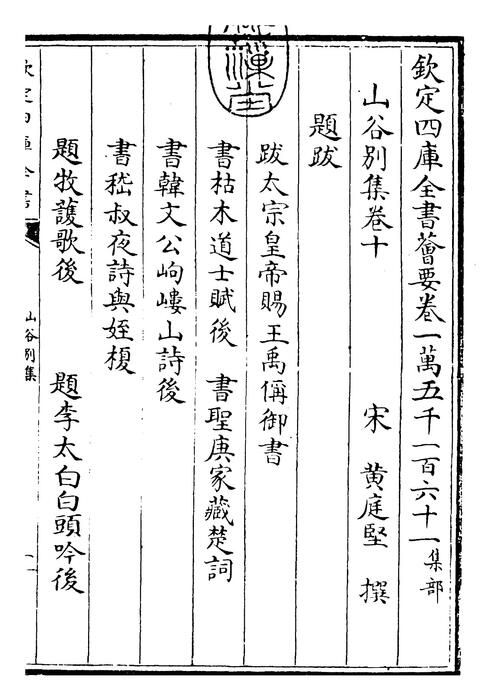 欽定四庫全書薈要卷一萬五千一百六十一 集部
山谷別集卷十 宋 黃庭堅 撰
題跋
跋太宗皇帝賜王禹偁御書
書枯木道士賦後 書聖庚家藏楚詞
書韓文公岣嶁山詩後
書嵇叔夜詩與姪榎
題牧護歌後 題李太白白頭吟後
欽定四庫全書
山谷別集
一